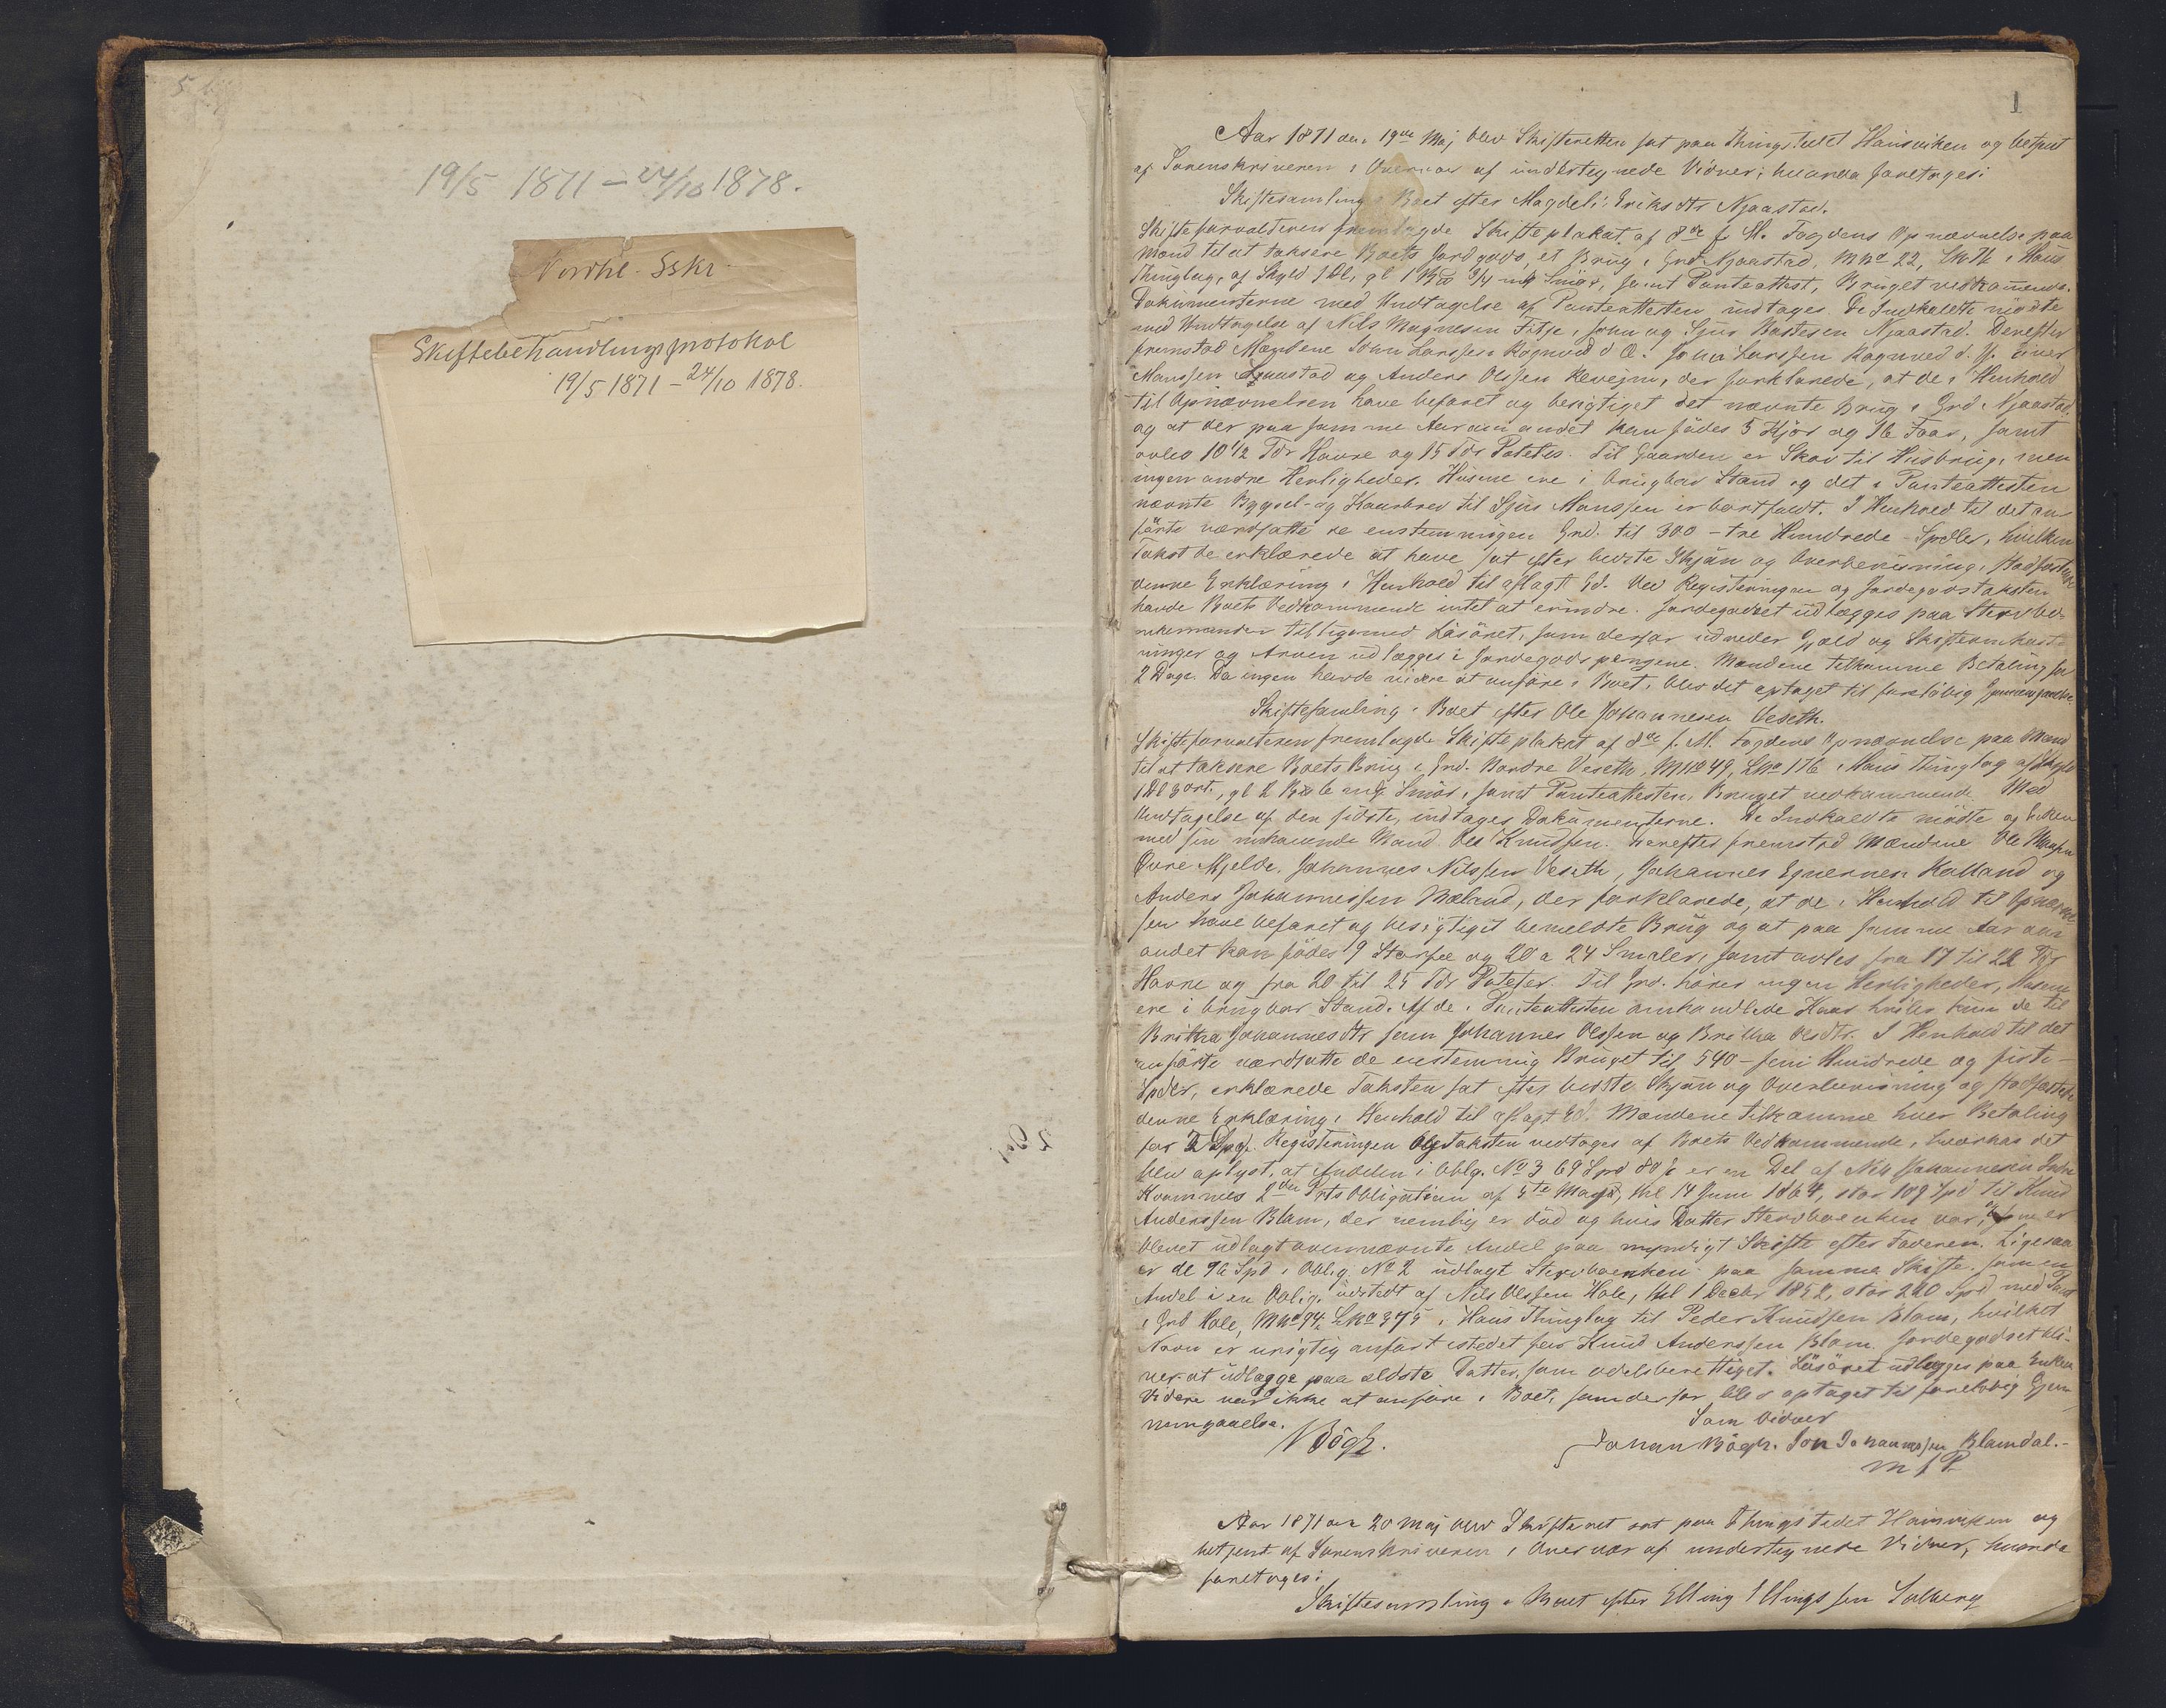 5
19/5 1871 – 24/10 1878.
Nordhl. Sskr.
Skiftebehandlingsprotokol
19/5 1871 – 24/10 1878.
1
Aar 1871 den 19de Maj blev Skifteretten sat paa Thingstedet Hausviken og betjent
af Sorenskriveren i Overvær af undertegnede Vidner; hvorda foretoges:
Skiftesamling i Boet efter Magdeli Eriksdtr Njaastad.
Skifteforvalteren fremlagde Skifteplakat af 8de f. M. Fogdens Opnævnelse paa
Mænd til at taksere Boets Jordgods, et Brug i Grd Njaastad, MNo 22, i Haus
Thinglag, af Skyld 1 Dl, gl 1 Bpd 3/4 mk Smør, samt Panteattest, Bruget vedkommende.
Dokumenterne med Undtagelse af Panteattesten indtages. De Indkaldte mødte
med Undtagelse af Nils Magnesen Fitje, John og Sjur Bastesen Njaastad. Derefter
fremstod Mændene John Larssen Rognved d. Æ. John Larssen Rognved d. Y. Einer
Monssen Njaastad og Anders Olssen Revejm, der forklarede, at de i Henhold
til Opnævnelsen have befaret og besigtiget det nævnte Brug i Grd Njaastad,
og at der paa samme Aar om andet kan födes 5 Kjör og 16 Faar, samt
avles 10 1/2 Tdr Havre og 15 Tdr Poteter. Til Gaarden er Skov til Husbrug, men
ingen andre Herligheder. Husene ere i brugbar Stand og det i Panteattesten
nævnte Bygsel- og Kaarbrev til Sjur Monssen er bortfaldt. I Henhold til det an-
førte værdsatte de enstemmigen Grd. til 300 – tre Hundrede – Spdlr, hvilken
Takst de erklærede at have sat efter bedste Skjön og Overbevisning, stadfæstende
denne Erklæring i Henhold til aflagt Ed. Ved Registeringen og Jordegodstaksten
havde Boets Vedkommende intet at erindre. Jordegodset udlægges paa Stervbo-
enkemanden tilligemed Løsöret, som derfor udreder Gjæld og Skifteomkost-
ninger og Arven udlægges i Jordegodspengene. Mændene tilkomme Betaling for
2 Dage. Da ingen havde videre at anføre i Boet, blev det optaget til foreløbig Gjennemgaaelse.
Skiftesamling i Boet efter Ole Johannesen Veseth.
Skifteforvalteren fremlagde Skifteplakat af 8de f. M. Fogdens Opnævnelse paa Mænd
til at taksere Boets Brug i Grd. Nordre Veseth, MNo 49, LNo 176 i Haus Thinglag af Skyld
1 Dl 3 ort, gl 2 Bpd 6 mk Smör, samt Panteattesten, Bruget vedkommende. Med
Undtagelse af den sidste, indtages Dokumenterne. De Indkaldte mödte og Enken
med sin nuhavende Mand Ole Knudsen. Derefter fremstod Mændene Ole
Øvre Mjelde, Johannes Nilssen Veseth, Johannes Kalland og
Anders Johannessen Mæland, der forklarede, at de i Henhold til Opnævnel
sen have befaret og besigtiget bemeldte Brug og at paa samme Aar om
andet kan födes 9 Storfæ og 20 a 24 Smaler, samt avles fra 17 til 22 Tdr
Havre og fra 20 til 25 Tdr Poteter. Til Grd. hörer ingen Herligheder, Husene
ere i brugbar Stand. Af de i Panteattesten omhandlede Kaar hviler kun de til
Britha Johannesdtr samt Johannes Olssen og Britha Olsdtr. I Henhold til det
anførte værdsatte de enstemmig Bruget til 540 – fem Hundrede og firti –
Spdlr, erklærede Taksten sat efter bedste Skjön og Overbevisning og stadfæstede
denne Erklæring i Henhold til aflagt Ed. Mændene tilkomme hver Betaling
for 2 Dage. Registeringen og Taksten vedtages af Boets Vedkommende, hvorhos det
blev oplyst, at Andelen i Oblg. No 3 69 Spd 80 s er en Del af Nils Johannesen Indre
Kvammes 2den Prts Obligation af 5te Maj, thl 14 Juni 1864, stor 109 Spd til Knud
Anderssen Blom, der nemlig er död og hvis Datter Stervboenken var,
blevet udlagt ovennævnte Andel paa myndigt Skifte efter Faderen. Ligesaa
er de 96 Spd i Oblig. No 2 udlagt Stervboenken paa samme Skifte som en
Andel i en Oblig. udstedt af Nils Olssen Hole, thl 1 Decbr 1852, stor 200 Spd med Pant
i Grd Hole, MNo 94, LNo 375 i Haus Thinglag til Peder Knudsen Blom, hvilket
Navn er urigtig anfört istedet for Knud Anderssen Blom. Jordegodset bli-
ver at udlægge paa ældste Datter, som odelsberettiget. Løsöret udlægges paa Enken
Videre var ikke at anføre i Boet, som derfor blev optaget til foreløbig Gjen-
nemgaaelse.
Som Vidner
N Bögh.
Johan Bögh. Jon Johannessen Blomdal.
m f P.
Aar 1871 den 20 Maj blev Skifteret sat paa Thingstedet Hausviken og
betjent af Sorenskriveren i Overvær af undertegnede Vidner, hvorda
foretoges:
Skiftesamling i Boet efter Elling Ellingssen Solberg